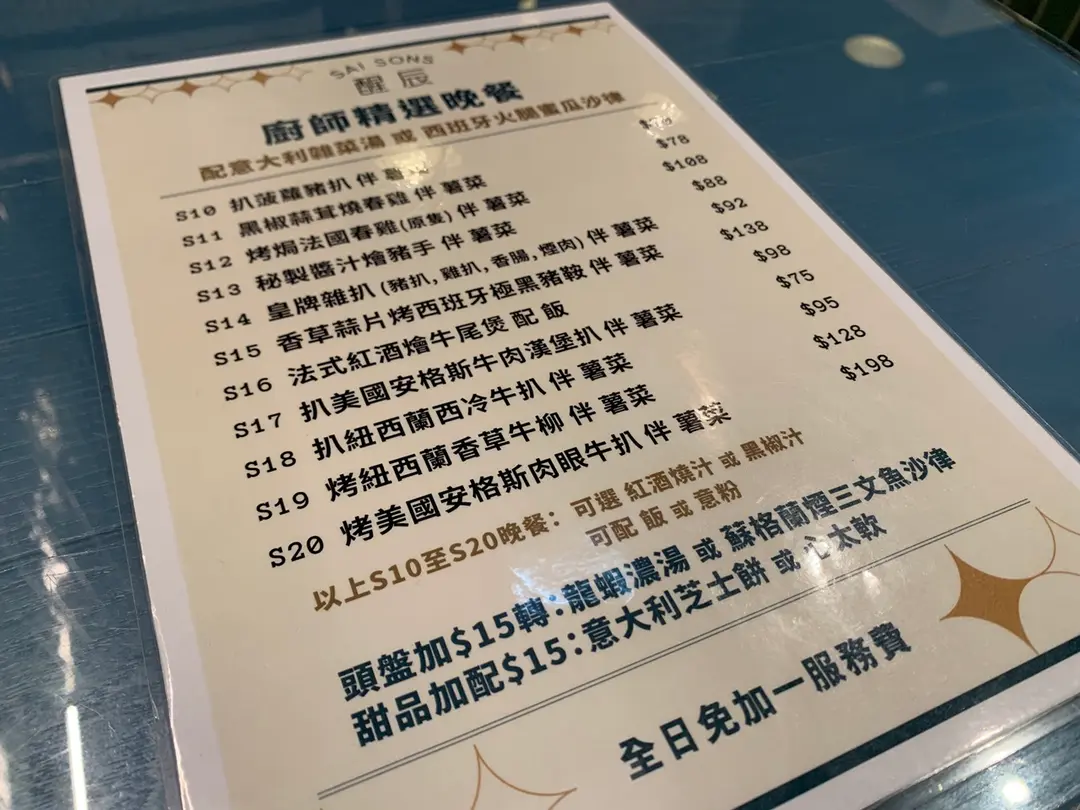 SAI SONS
醒辰
廚師精選晚餐
配意大利雜菜湯 或 西班牙火腿蜜瓜沙律
S10 扒菠蘿豬扒 伴 薯
S11 黑椒蒜茸燒春雞 伴 薯菜 $78
S12 烤焗法國春雞(原隻) 伴 薯菜 $108
S13 秘製醬汁燴豬手 伴 薯菜 $88
S14 皇牌雜扒 (豬扒, 雞扒, 香腸, 煙肉) 伴 薯菜 $92
S15 香草蒜片烤西班牙極黑豬鞍 伴 薯菜 $138
S16 法式紅酒燴牛尾煲 配 飯 $98
S17 扒美國安格斯牛肉漢堡扒 伴 薯菜 $75
S18 扒紐西蘭西冷牛扒 伴 薯菜 $95
S19 烤紐西蘭香草牛柳 伴 薯菜 $128
S20 烤美國安格斯肉眼牛扒 伴 薯菜 $198
以上S10至S20晚餐: 可選 紅酒燒汁 或 黑椒汁
可配 飯 或 意粉
頭盤加$15轉:龍蝦濃湯 或 蘇格蘭煙三文魚沙律
甜品加配$15:意大利芝士餅 或 心太軟
全日免加一服務費